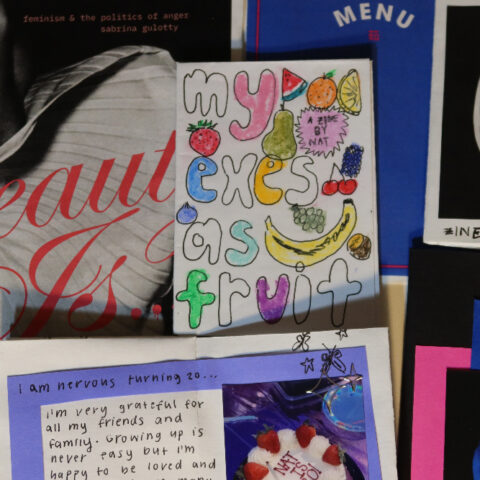 feminism & the politics of anger
sabrina gulotty
eauty
Is...
MENU
my
A ZINE
BY
NAT
exes
as
fruit
ZINE
i am nervous turning 20...
I'm very grateful for
all my friends and
family. Growing up is
never easy but I'm
happy to be loved and
NAT
IS
20!